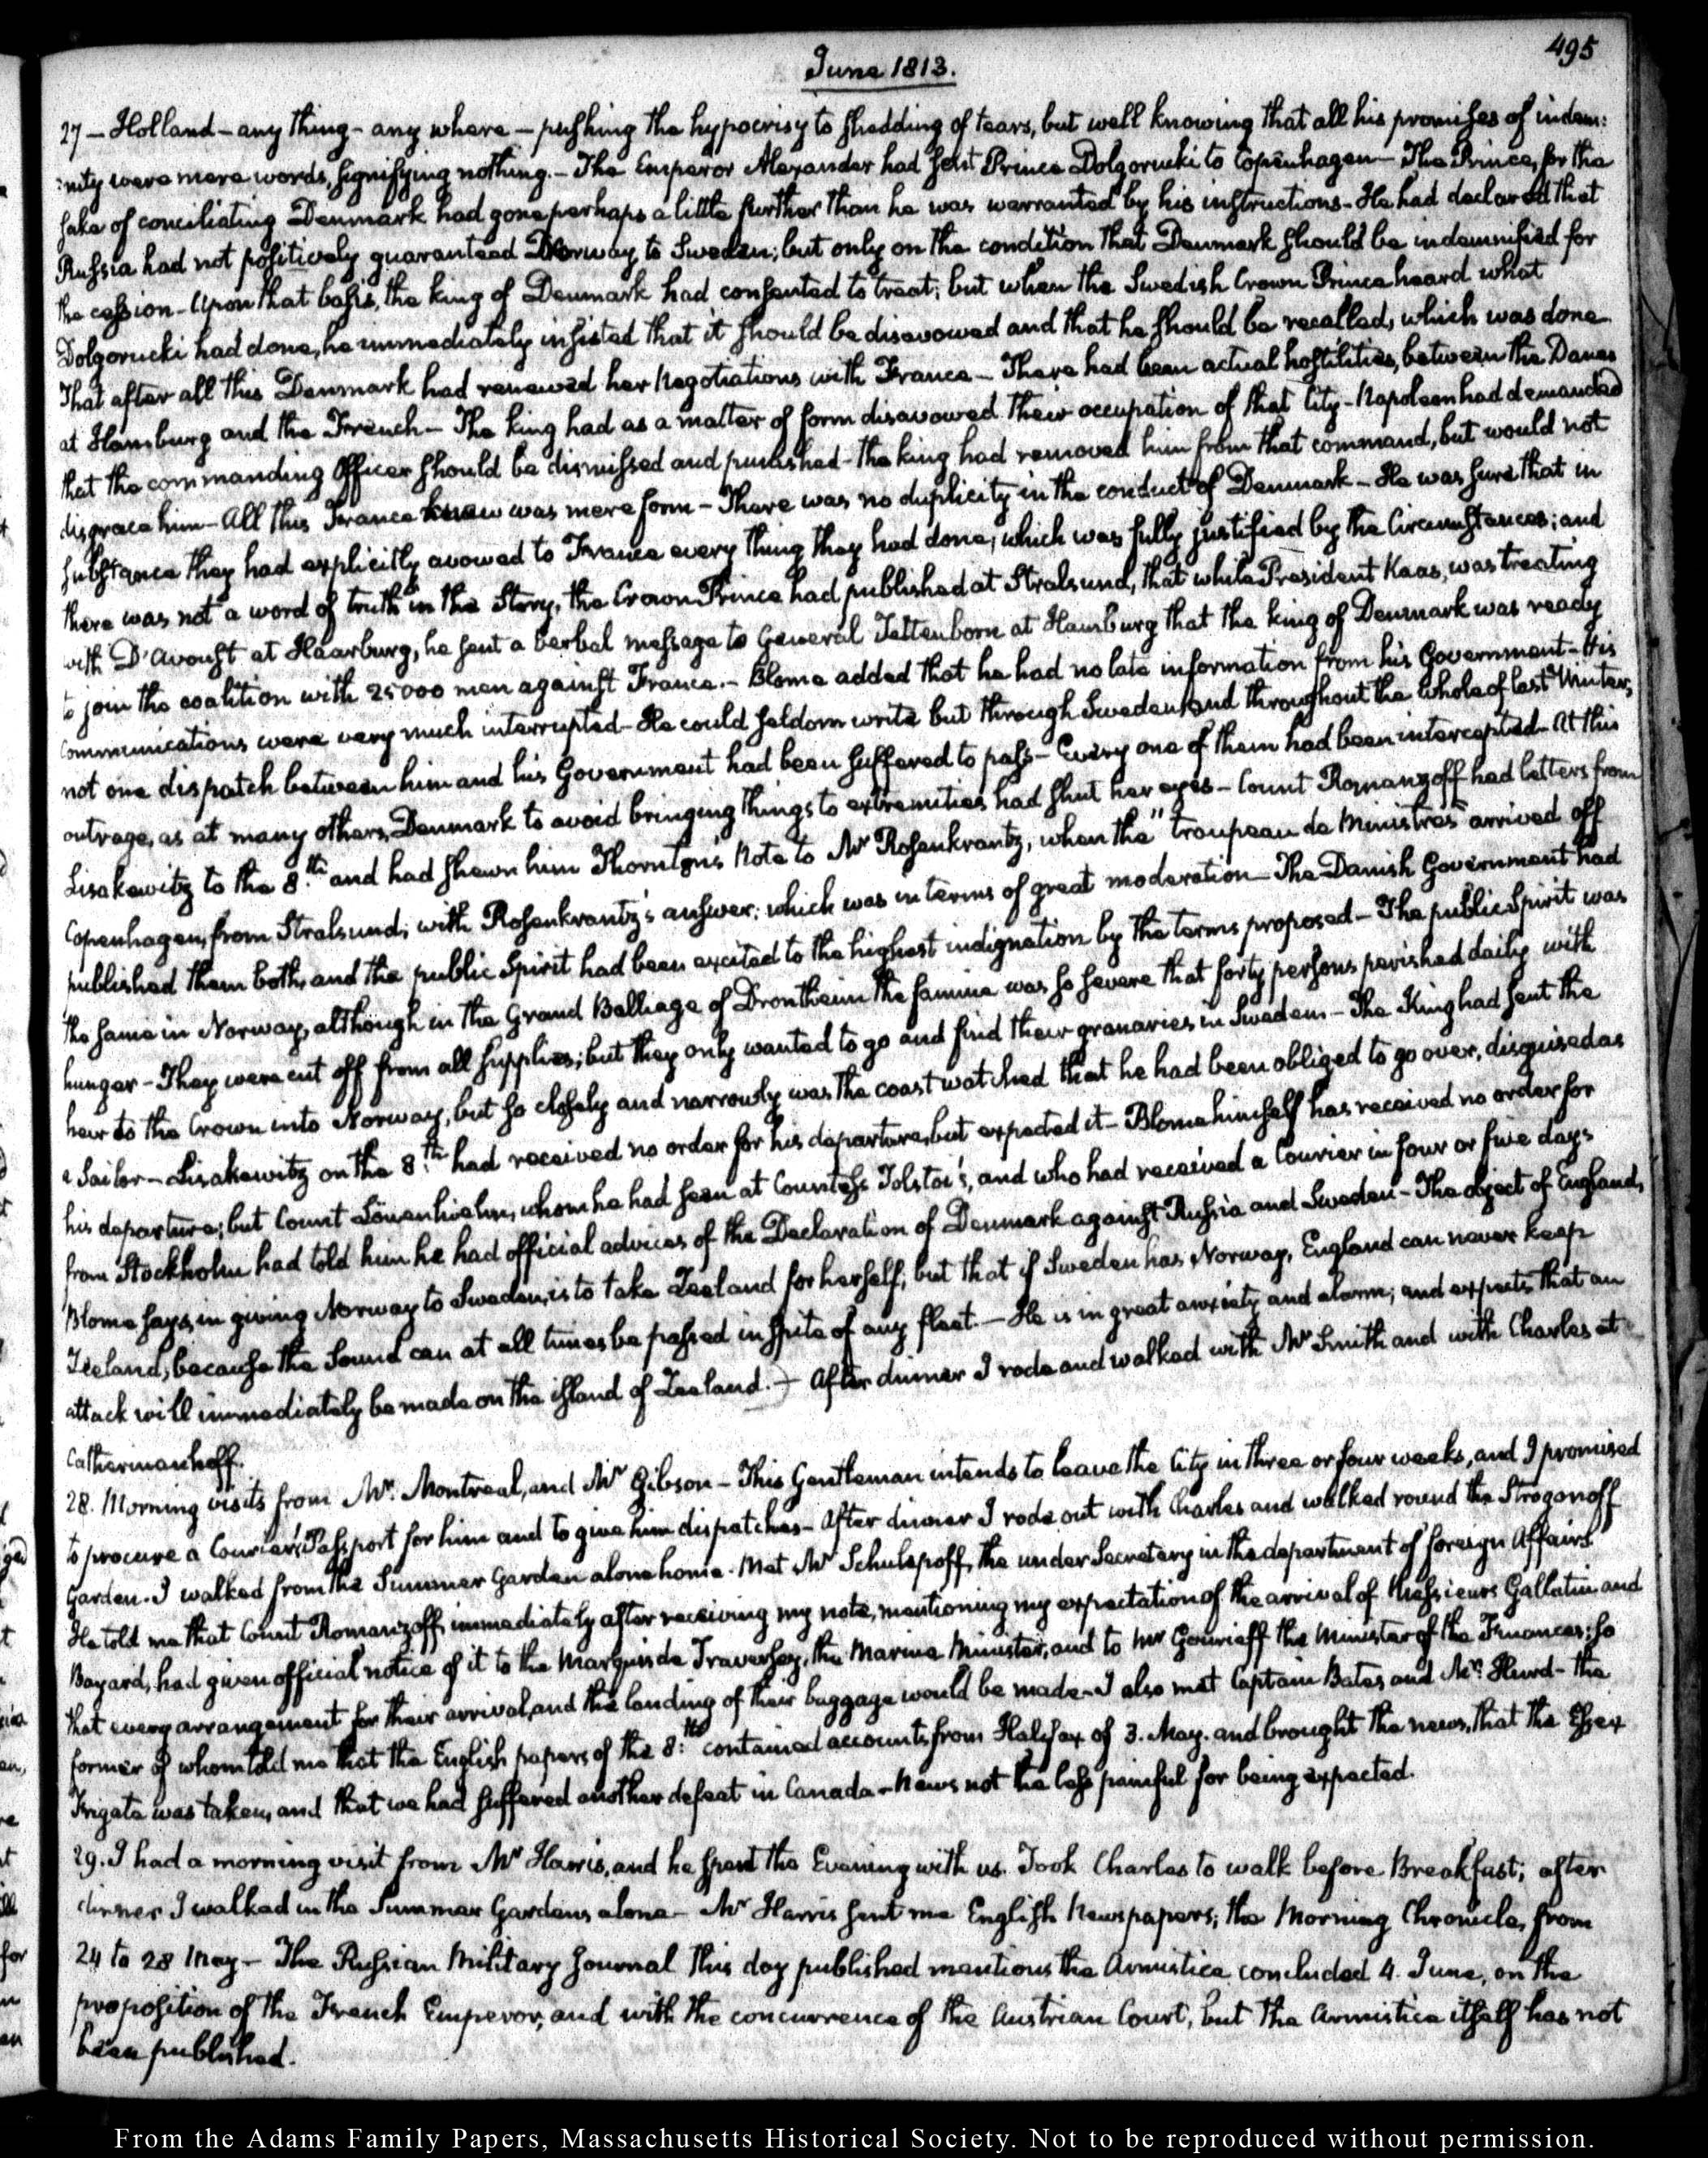 495
June 1813.
27 — Holland — any thing — any where — pushing the hypocrisy to shedding of tears, but well knowing that all his promises of indem:
:nity were mere words, signifying nothing. — The Emperor Alexander had sent Prince Dolgorucki to Copenhagen — The Prince, for the
sake of conciliating Denmark had gone perhaps a little further than he was warranted by his instructions — He had declared that
Russia had not positively guaranteed Norway to Sweden; but only on the condition that Denmark should be indemnified for
the cession — Upon that basis, the king of Denmark had consented to treat; but when the Swedish Crown Prince heard what
Dolgorucki had done, he immediately insisted that it should be disavowed and that he should be recalled, which was done
That after all this Denmark had renewed her Negotiations with France — There had been actual hostilities, between the Danes
at Hamburg and the French — The king had as a matter of form disavowed their occupation of that City — Napoleon had demanded
that the commanding Officer should be dismissed and punished — the king had removed him from that command, but would not
disgrace him — All this France knew was mere form — There was no duplicity in the conduct of Denmark — He was sure that in
substance they had explicitly avowed to France every thing they had done, which was fully justified by the Circumstances; and
there was not a word of truth in the Story, the Crown Prince had published at Stralsund, that while President Kaas, was treating
with D'Avoust at Haarburg, he sent a verbal message to General Tettenborn at Hamburg that the king of Denmark was ready
to join the coalition with 25000 men against France. — Blome added that he had no late information from his Government — His
communications were very much interrupted — He could seldom write but through Sweden, and throughout the whole of last Winter,
not one dispatch between him and his Government had been suffered to pass — Every one of them had been intercepted — At this
outrage, as at many others, Denmark to avoid bringing things to extremities had shut her eyes — Count Romanzoff had letters from
Lisakewitz to the 8.th and had shewn him Thornton's Note to Mr Rosenkrantz, when the "troupeau de Ministres" arrived off
Copenhagen, from Stralsund; with Rosenkrantz's answer; which was in terms of great moderation — The Danish Government had
published them both, and the public Spirit had been excited to the highest indignation by the terms proposed — The public Spirit was
the same in Norway, although in the Grand Balliage of Drontheim the famine was so severe that forty persons perished daily with
hunger — They were cut off from all supplies; but they only wanted to go and find their granaries in Sweden. — The King had sent the
heir to the Crown into Norway, but so closely and narrowly was the coast watched that he had been obliged to go over, disguised as
a Sailor — Lisakewitz on the 8.th had received no order for his departure, but expected it — Blome himself has received no order for
his departure; but Count Löwenhielm, whom he had seen at Countess Tolstoi's, and who had received a Courier in four or five days
from Stockholm had told him he had official advices of the Declaration of Denmark against Russia and Sweden — The object of England,
Blome says, in giving Norway to Sweden, is to take Zeeland for herself; but that if Sweden has Norway, England can never keep
Zeeland, because the Sound can at all times be passed in spite of any fleet. — He is in great anxiety and alarm; and expects that an
attack will immediately be made on the island of Zeeland. — After dinner I rode and walked with Mr Smith and with Charles at
Catherinenhoff.
28. Morning visits from Mr. Montreal, and Mr Gibson — This Gentleman intends to leave the City in three or four weeks, and I promised
to procure a Courier's Passport for him and to give him dispatches — After dinner I rode out with Charles and walked round the Strogonoff
Garden. I walked from the Summer Garden alone home. Met Mr Schulepoff, the under Secretary in the department of foreign Affairs
He told me that Count Romanzoff, immediately after receiving my note, mentioning my expectation of the arrival of Messieurs Gallatin and
Bayard, had given official notice of it to the Marquis de Traversay, the Marine Minister, and to Mr Gourieff the Minister of the Finances; so
that every arrangement for their arrival, and the landing of their baggage would be made — I also met Captain Bates and Mr. Hurd — the
former of whom told me that the English papers of the 8.th contained accounts from Halifax of 3. May. and brought the news, that the Essex
Frigate was taken, and that we had suffered another defeat in Canada — News not the less painful for being expected.
29. I had a morning visit from Mr Harris, and he spent the Evening with us. Took Charles to walk before Breakfast; after
dinner I walked in the Summer Gardens alone — Mr Harris sent me English Newspapers; the Morning Chronicle, from
24 to 28 May — The Russian Military Journal this day published mentions the Armistice concluded 4. June, on the
proposition of the French Emperor, and with the concurrence of the Austrian Court; but the Armistice itself has not
been published.
From the Adams Family Papers, Massachusetts Historical Society. Not to be reproduced without permission.